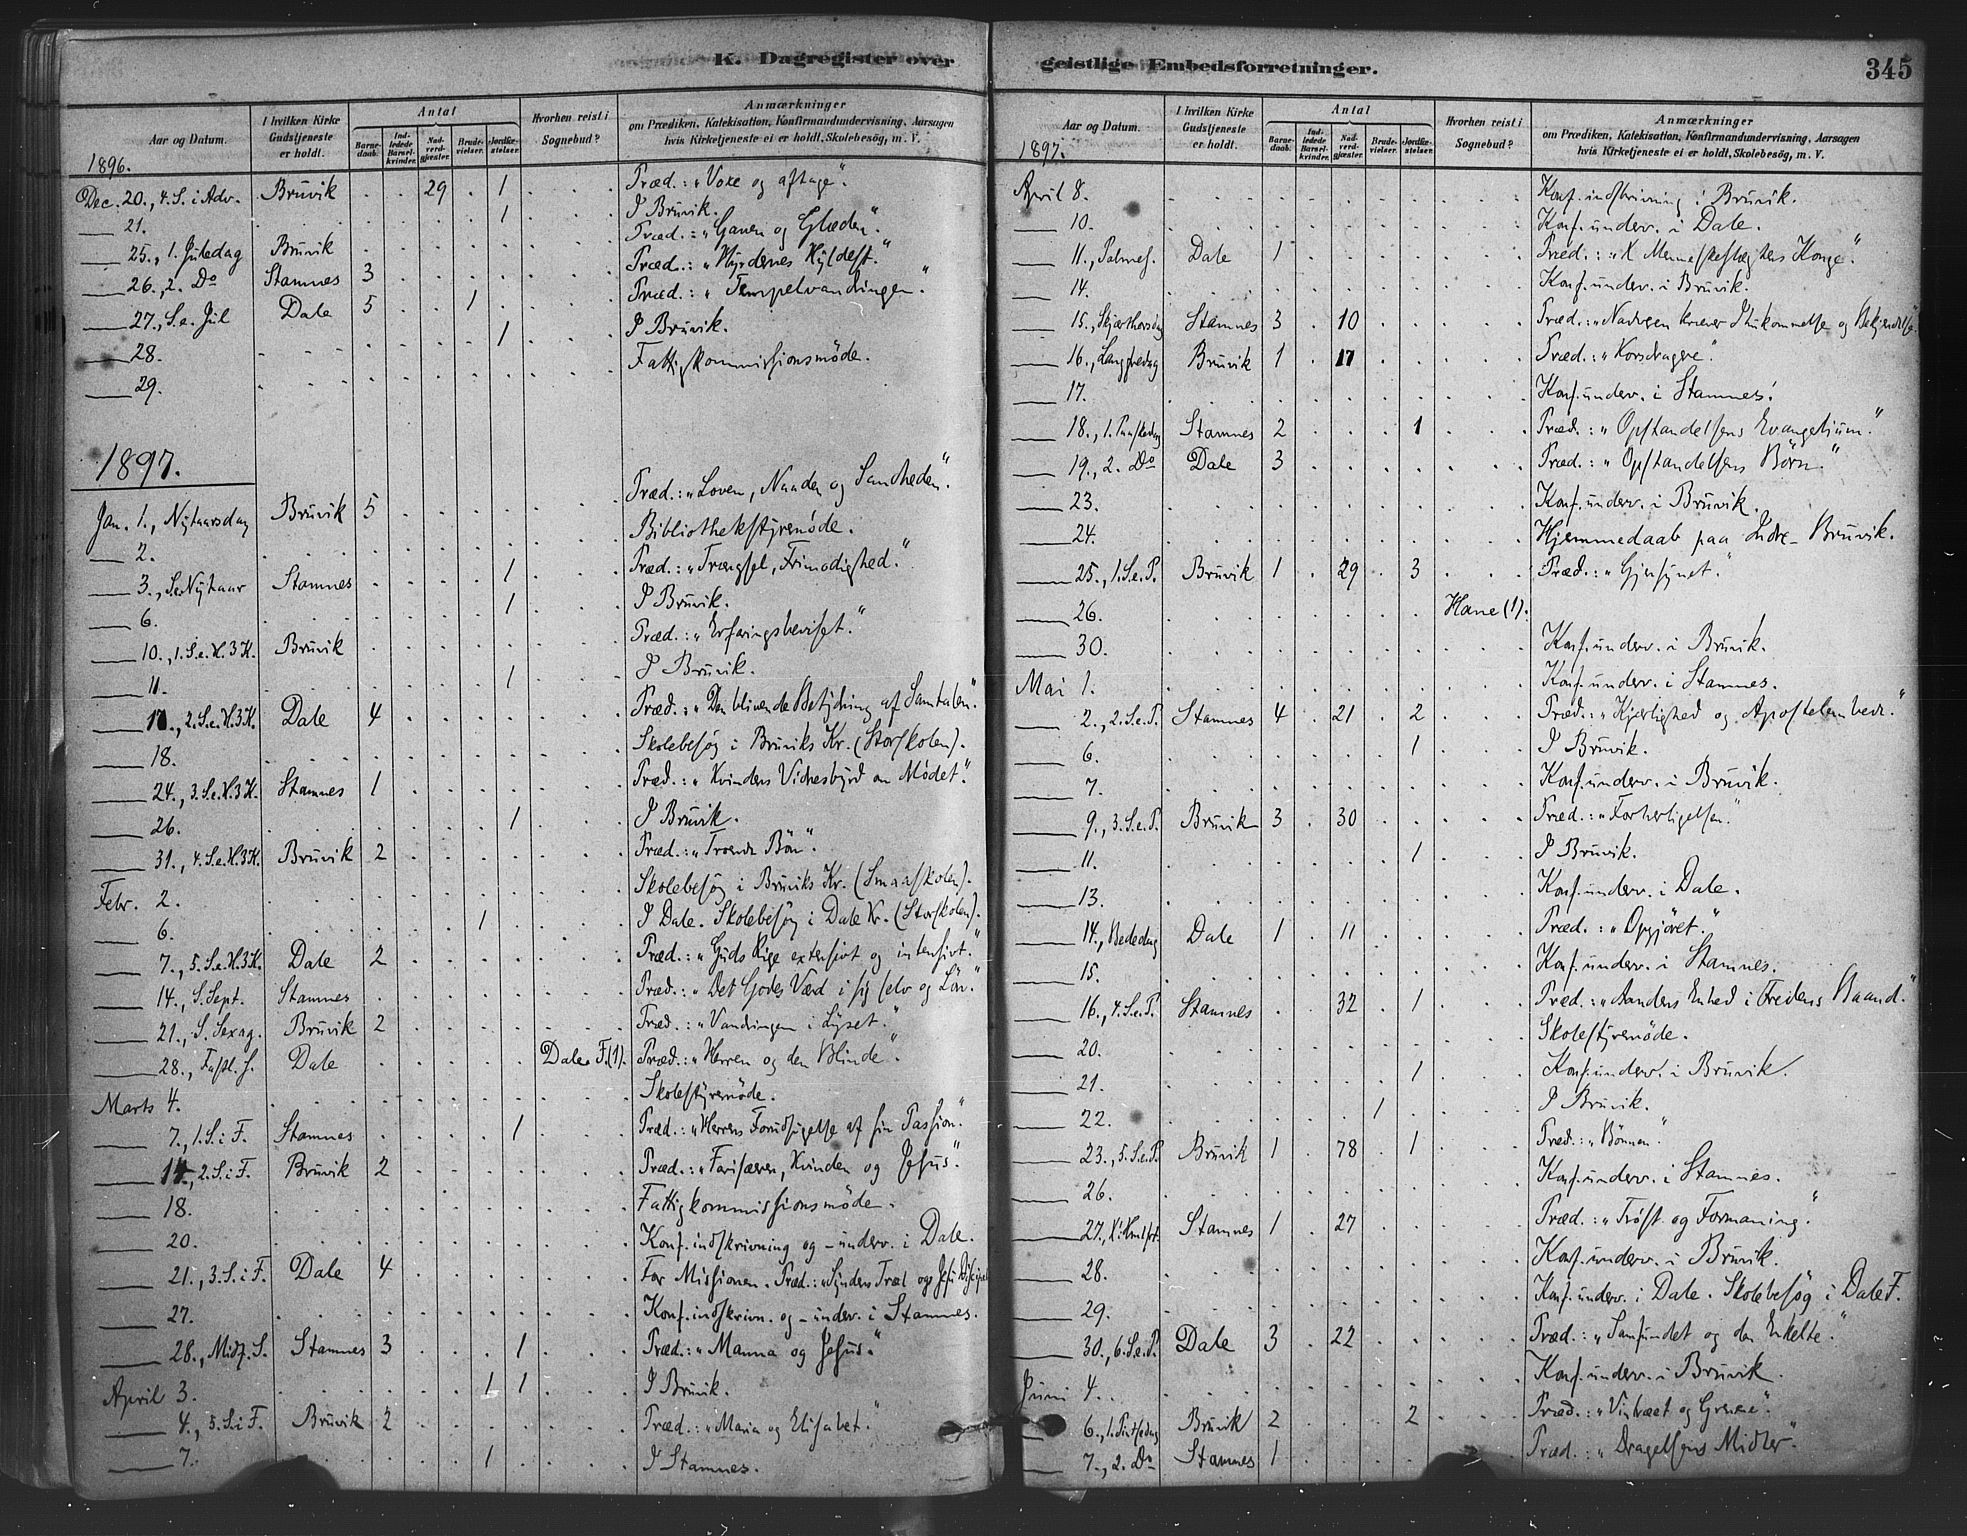 K. Dagregister over geistlige Embedsforretninger. 345
Aar og Datum. I hvilken Kirke Gudstjeneste er holdt. Antal Barnedaab. Indledede Barselkvinder. Nadverdgjæster. Brudevielser. Jordfæstelser. Hvorhen reist i Sognebud? Anmærkninger om Prædiken, Katekisation, Konfirmandundervisning, Aarsagen hvis Kirketjeneste ei er holdt, Skolebesög, m. V.
1896.
Dec. 20., 4. S. i Adv. Bruvik 29 1 Præd.: "Voxe og aftage".
21. 1 I Bruvik.
25., 1. Juledag Bruvik Præd.: "Gaven og Glæden".
26., 2. Do Stamnes 3 Præd.: "Hyrdernes Hyldest."
27., S. e. Jul Dale 5 1 Præd.: "Tempelvandingen."
28. 1 I Bruvik.
29. Fattigkommissionsmöde.
1897.
Jan. 1., Nytaarsdag Bruvik 5 Præd.: "Loven, Naaden og Sandheden".
2. Bibliothekstyremöde.
3., S. e. Nytaar Stamnes 1 Præd.: "Trængsel, Frimodighed."
6. 1 I Bruvik.
10., 1. S. e. H. 3 K. Bruvik Præd.: "Erfaringsbeviset."
11. 1 I Bruvik.
17., 2. S. e. H. 3 K. Dale 4 Præd.: "Den blivende Betydning af Samtalen."
18. Skolebesög i Bruviks Kr. (Storskolen).
24., 3. S. e. H. 3 K. Stamnes 1 Præd.: "Kvindens Vidnesbyrd om Mödet".
26. 1 I Bruvik.
31., 4. S. e. H. 3 K. Bruvik 2 Præd.: "Troende Bön".
Febr. 2. Skolebesög i Bruviks Kr. (Smaaskolen).
6. 1 I Dale. Skolebesög i Dale Kr. (Storskolen).
7., 5. S. e. H. 3 K. Dale 2 Præd.: "Guds Rige extensivt og intensivt."
14., S. Sept. Stamnes Præd.: "Det Godes Værd i sig selv og Lön."
21., S. Sexag. Bruvik 2 Præd.: "Vandingen i Lyset."
28., Fastl. S. Dale Dale F. (1). Præd.: "Herren og den Blinde".
Marts 4. Skolestyremöde.
7., 1. S. i F. Stamnes 1 Præd.: "Herrens Forudsigelse af sin Passion."
14., 2. S. i F. Bruvik 2 Præd.: "Farisæeren, Kvinden og Jesus".
18. Fattigkommissionsmöde.
20. Konf. indskrivning og -underv. i Dale.
21., 3. S. i F. Dale 4 For Missionen. Præd.: "Syndens Træl og Jesu Discipel
27. Konf. indskrivn. og -underv. i Stamnes.
28., Midf. S. Stamnes 3 1 Præd.: "Manna og Jesus".
April 3. 1 1 I Bruvik.
4., 5. S. i F. Bruvik 2 Præd.: "Maria og Elisabet."
7. 1 I Stamnes.
Aar og Datum. I hvilken Kirke Gudstjeneste er holdt. Antal Barnedaab. Indledede Barselkvinder. Nadverdgjæster. Brudevielser. Jordfæstelser. Hvorhen reist i Sognebud? Anmærkninger om Prædiken, Katekisation, Konfirmandundervisning, Aarsagen hvis Kirketjeneste ei er holdt, Skolebesög, m. V.
1897.
April 8. Konf. indskrivning i Bruvik.
10. Konf. underv. i Dale.
11., Palmes. Dale 1 Præd.: "K Menneskeslægtens Konge".
14. Konf. underv. i Bruvik.
15., Skjærthorsdag Stamnes 3 10 Præd.: "Nadveren kræver Ihukommelse og Bekjendelse"
16., Langfredag Bruvik 1 17 Præd.: "Korsdragere".
17. Konf. underv. i Stamnes.
18., 1. Paaskedag Stamnes 2 1 Præd.: "Opstandelsens Evangelium."
19., 2. Do Dale 3 Præd.: "Opstandelsens Börn."
23. Konf. underv. i Bruvik.
24. Hjemmedaab paa Indre-Bruvik.
25., 1. S. e. P. Bruvik 1 29 3 Præd.: "Gjensynet."
26. Hane (1).
30. Konf. underv. i Bruvik.
Mai 1. Konf. underv. i Stamnes.
2., 2. S. e. P. Stamnes 4 21 2 Præd.: "Kjærlighed og Apostelembede."
6. 1 I Bruvik.
7. Konf. underv. i Bruvik.
9., 3. S. e. P. Bruvik 3 30 Præd.: "Forherligelsen."
11. 1 I Bruvik.
13. Konf. underv. i Dale.
14., Bededag Dale 1 11 Præd.: "Opgjöret."
15. Konf. underv. i Stamnes.
16., 4. S. e. P. Stamnes 32 1 Præd.: "Aandens Enhed i Fredens Baand."
20. Skolestyremöde.
21. 1 Konf. underv. i Bruvik.
22. 1 I Bruvik.
23., 5. S. e. P. Bruvik 1 78 1 Præd.: "Bönnen."
26. Konf. underv. i Stamnes.
27., Kr. Hmlfrt. Stamnes 1 27 Præd.: "Tröst og Formaning."
28. Konf. underv. i Bruvik.
29. Konf. underv. i Dale. Skolebesög i Dale F.
30., 6. S. e. P. Dale 3 22 Præd.: "Samfundet og den Enkelte."
Juni 4. Konf. underv. i Bruvik.
6., 1. Pintsedag Bruvik 2 2 Præd.: "Vintræet og Grenene".
7., 2. Do Stamnes 1 Præd.: "Dragelsens Midler".